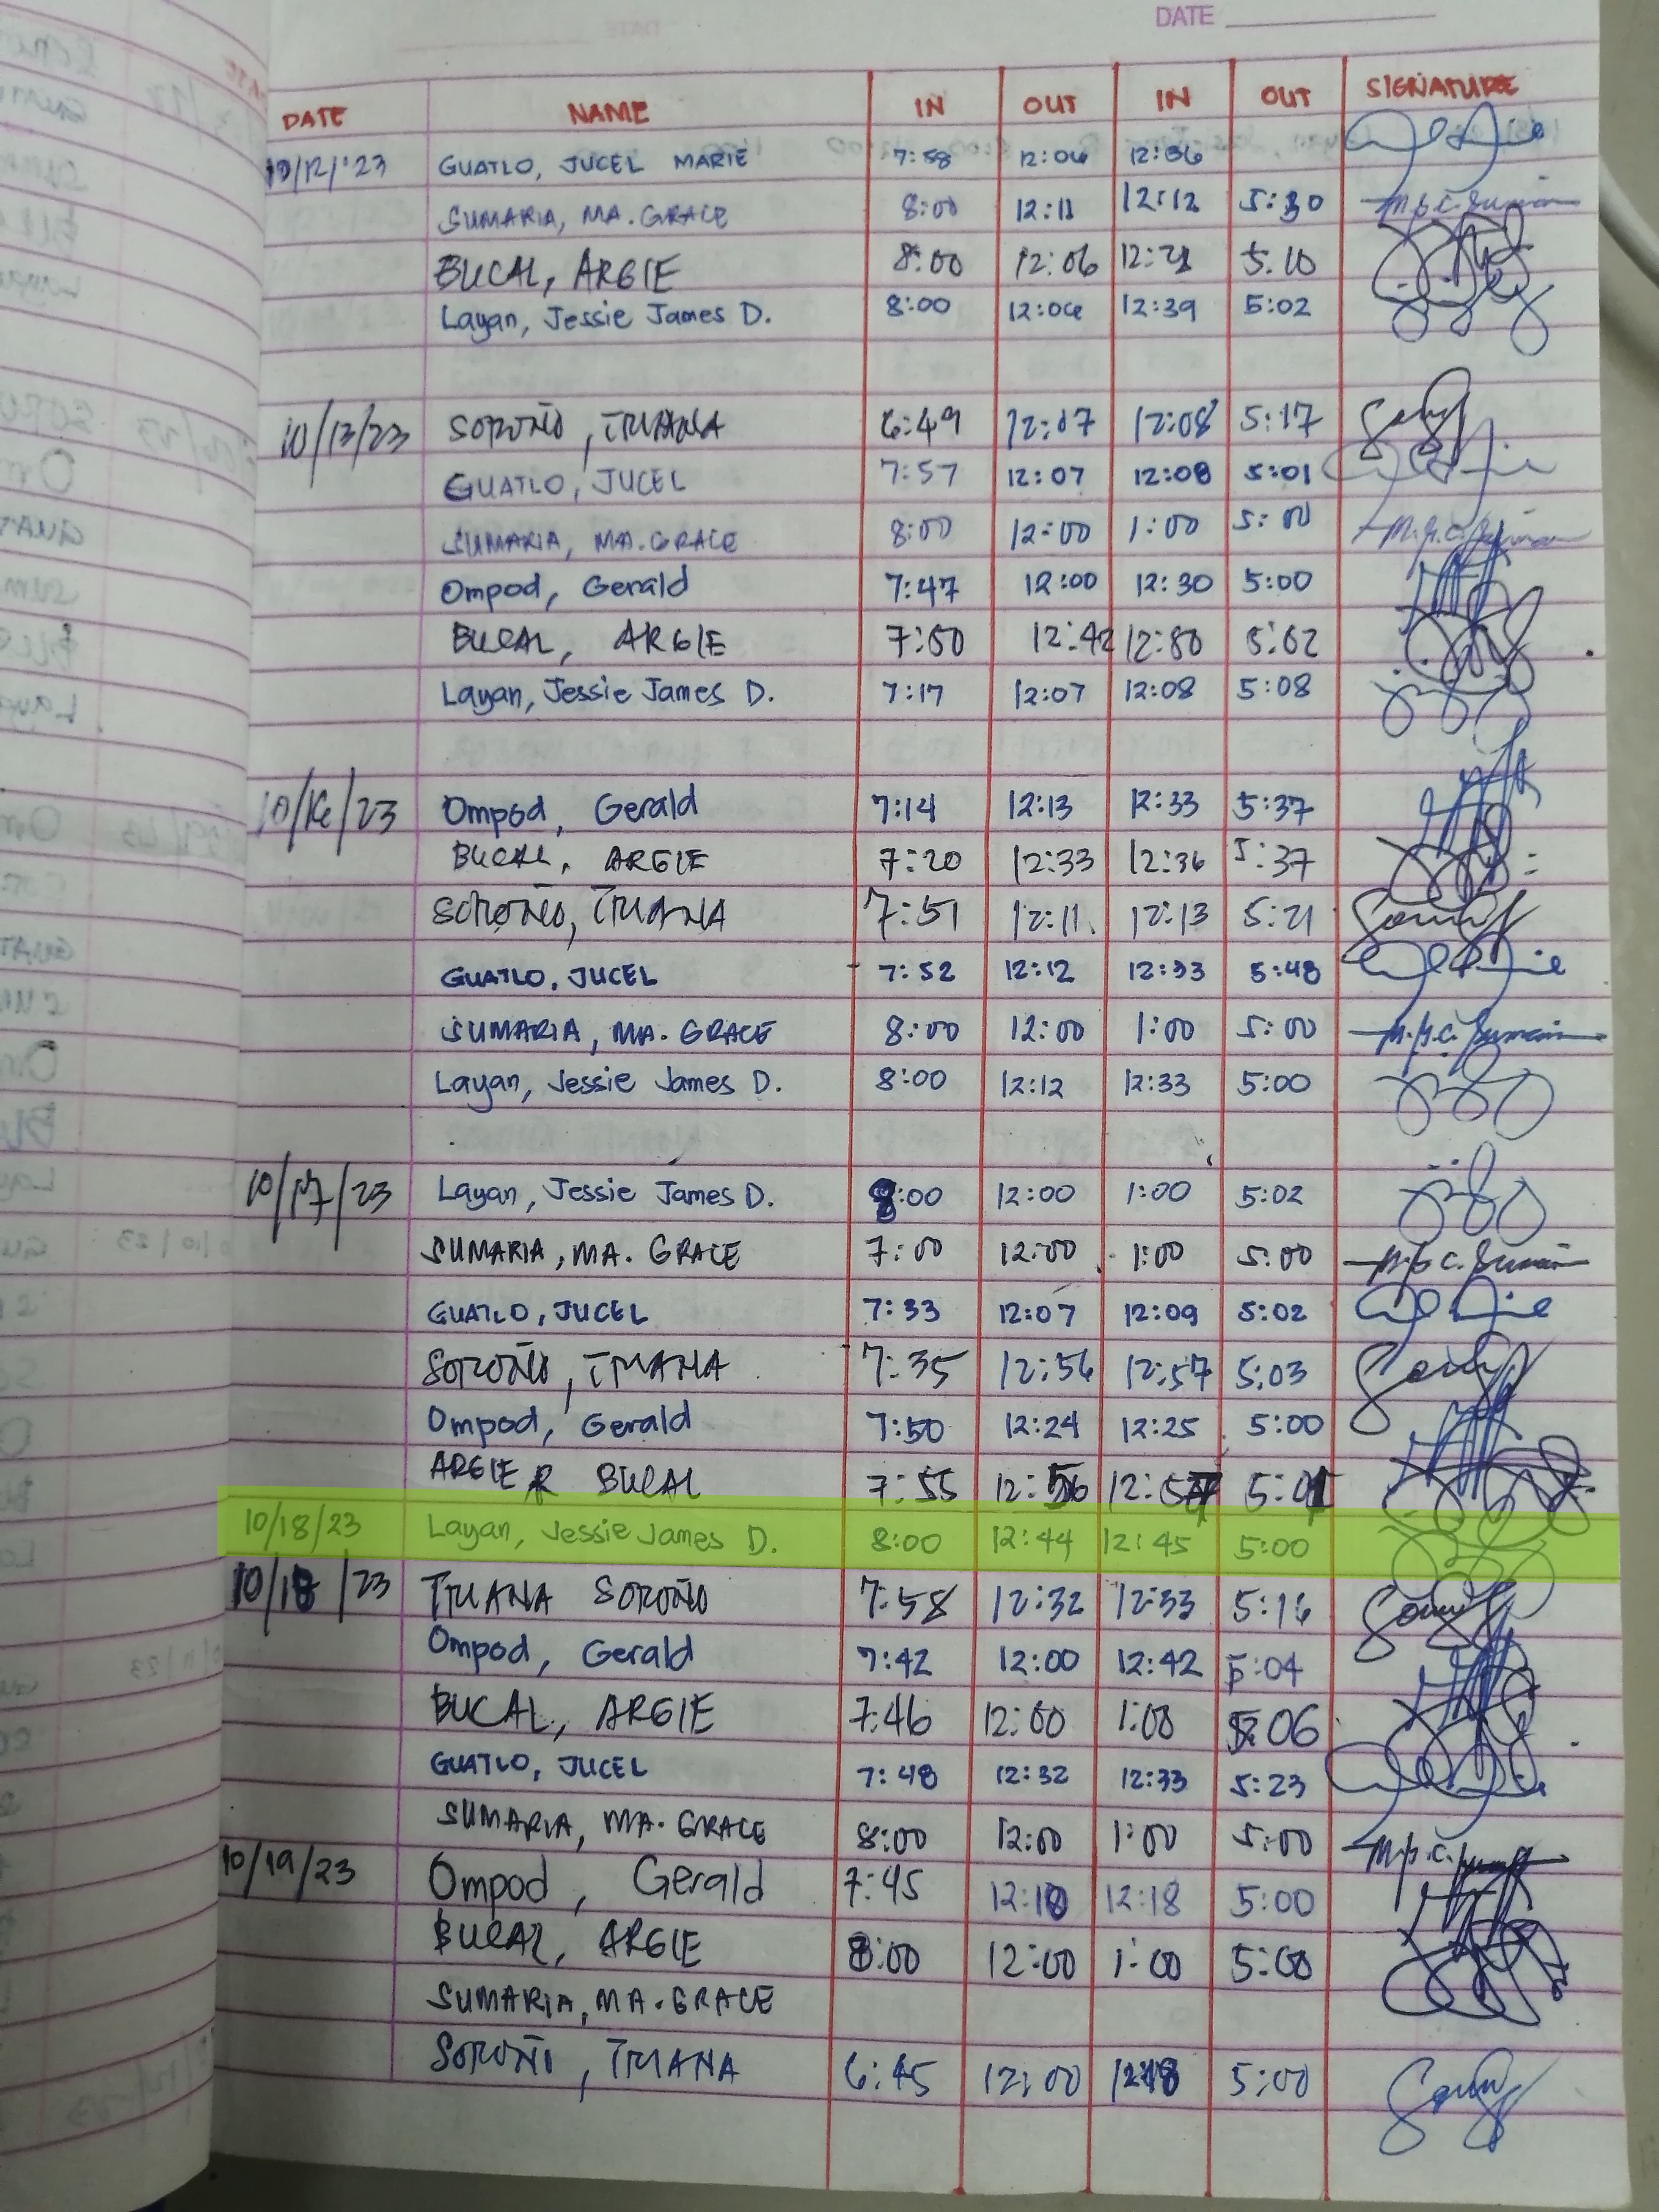 DATE
DATE NAME IN OUT IN OUT SIGNATURE
10/12/'23 GUATLO, JUCEL MARIE 7:58 12:06 12:36
SUMARIA, MA. GRACE 8:00 12:11 12:12 5:30
BUCAL, ARGIE 8:00 12:06 12:21 5:10
Layan, Jessie James D. 8:00 12:06 12:39 5:02
10/13/23 SOROÑO, TRIANA 6:49 12:07 12:08 5:17
GUATLO, JUCEL 7:57 12:07 12:08 5:01
SUMARIA, MA. GRACE 8:00 12:00 1:00 5:00
Ompod, Gerald 7:47 12:00 12:30 5:00
BUCAL, ARGIE 7:50 12:42 12:50 5:02
Layan, Jessie James D. 7:17 12:07 12:08 5:08
10/16/23 Ompod, Gerald 7:14 12:13 12:33 5:37
BUCAL, ARGIE 7:20 12:33 12:36 5:37
SOROÑO, TRIANA 7:51 12:11 12:13 5:21
GUATLO, JUCEL 7:52 12:12 12:33 5:48
SUMARIA, MA. GRACE 8:00 12:00 1:00 5:00
Layan, Jessie James D. 8:00 12:12 12:33 5:00
10/17/23 Layan, Jessie James D. 8:00 12:00 1:00 5:02
SUMARIA, MA. GRACE 7:00 12:00 1:00 5:00
GUATLO, JUCEL 7:33 12:07 12:09 5:02
SOROÑO, TRIANA 7:35 12:56 12:57 5:03
Ompod, Gerald 7:50 12:24 12:25 5:00
ARGIE R BUCAL 7:55 12:56 12:57 5:01
10/18/23 Layan, Jessie James D. 8:00 12:44 12:45 5:00
10/18/23 TRIANA SOROÑO 7:58 12:32 12:33 5:16
Ompod, Gerald 7:42 12:00 12:42 5:04
BUCAL, ARGIE 7:46 12:00 1:00 5:06
GUATLO, JUCEL 7:48 12:32 12:33 5:23
SUMARIA, MA. GRACE 8:00 12:00 1:00 5:00
10/19/23 Ompod, Gerald 7:45 12:10 12:18 5:00
BUCAL, ARGIE 8:00 12:00 1:00 5:00
SUMARIA, MA. GRACE
SOROÑO, TRIANA 6:45 12:00 12:18 5:00